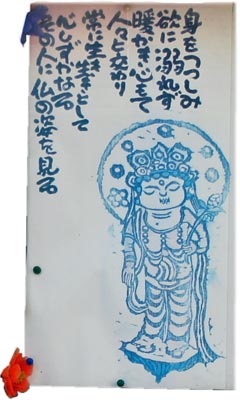 身をつつしみ
欲に溺れず
暖かき心もて
人々と交わり
常に生き生きとして
心しずかなる
その人に仏の姿を見る